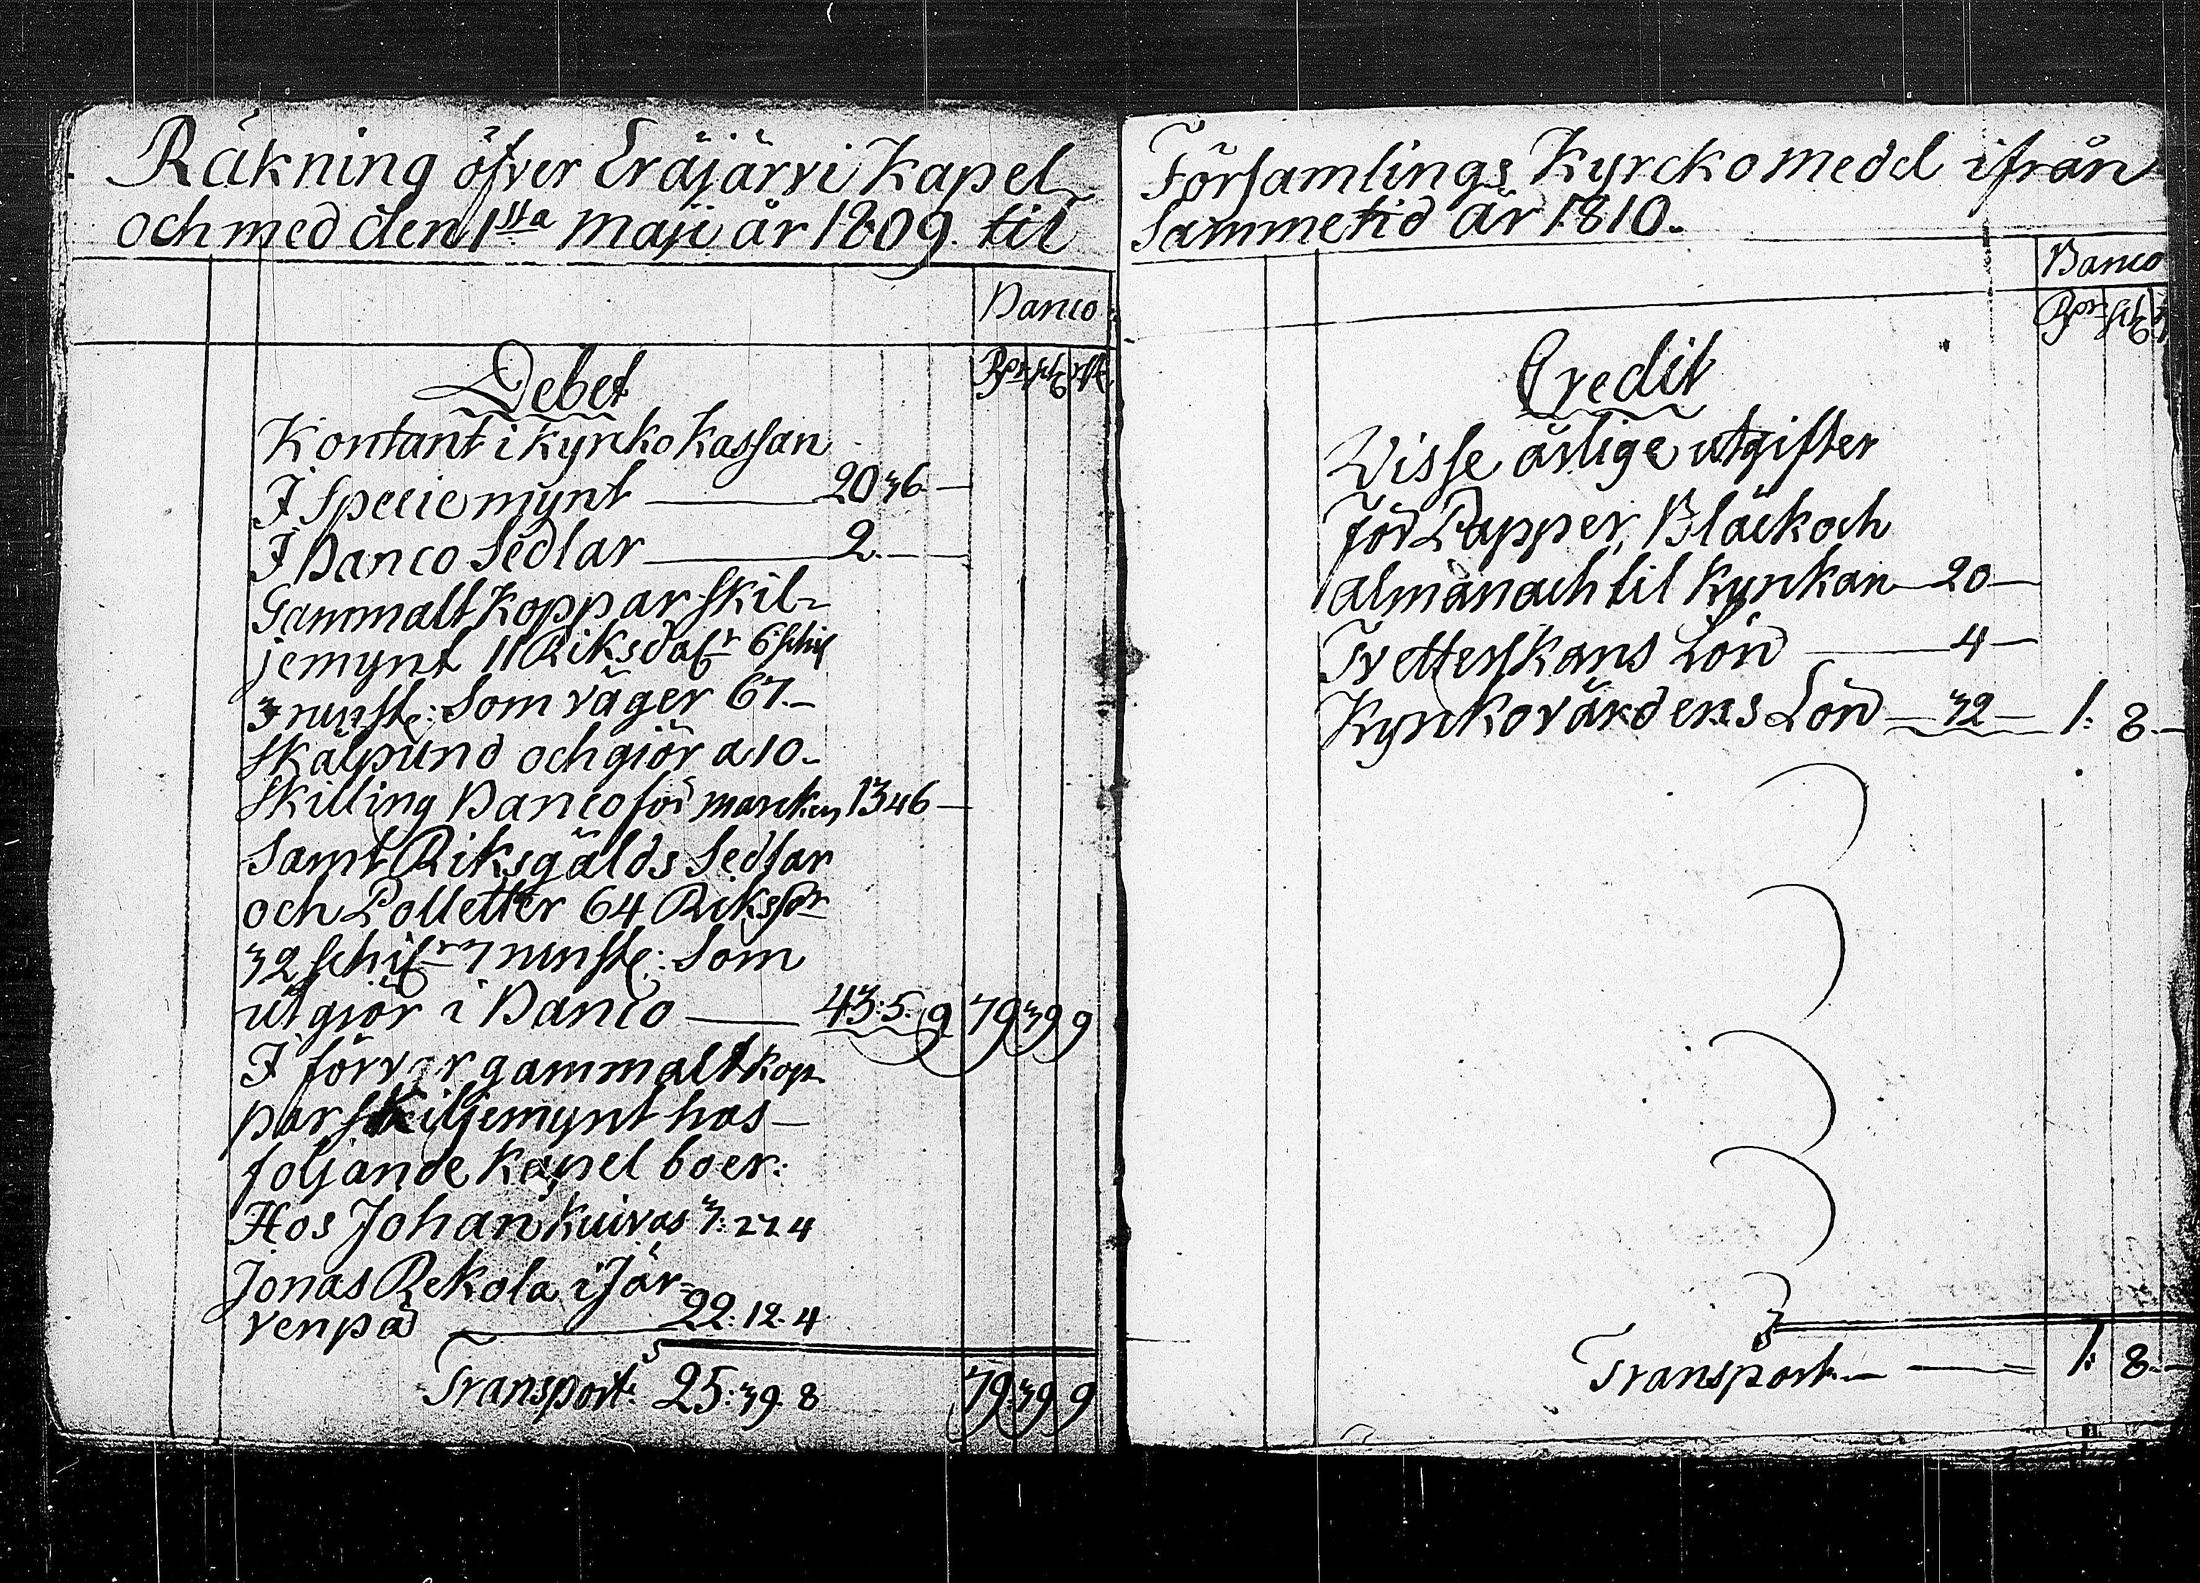 Räkning öfver Eräjärvi Kapel
och med den 1sta Maji år 1809. til
Banco
Rdr sch rst
Debet
Kontant i kyrko Kassan
I Specie mynt 20 36 —
I Banco Sedlar 2. —
Gammalt koppar skil-
jemynt 11 Riksdalr 6 schil
3 runst: Som väger 67.-
skålpund och giör a 10-
skilling Banco för marcken 13 46 —
Samt Riksgälds Sedlar
och Polletter 64 Riksdr
32 schilr 7 runst: Som
utgiör i Banco 43: 5. 9 79 39 9
I förvar gammalt kop-
par skiljemynt hos-
foljande kapel boer:
Hos Johan Kuivas 3: 27 4
Jonas Rekola i Jär-
venpä 22: 12. 4
Transport: 25: 39. 8 79 39 9
Församlings Kyrcko medel ifrån
Samme tid år 1810.
Banco
Rdr sch
Credit
Visse årlige utgifter
för Papper, Bläck och
almanach til kyrkan 20 —
Tvetterskans Lön 4 —
Kyrkovärdens Lön 32 — 1: 8. —
Transport 1: 8. —